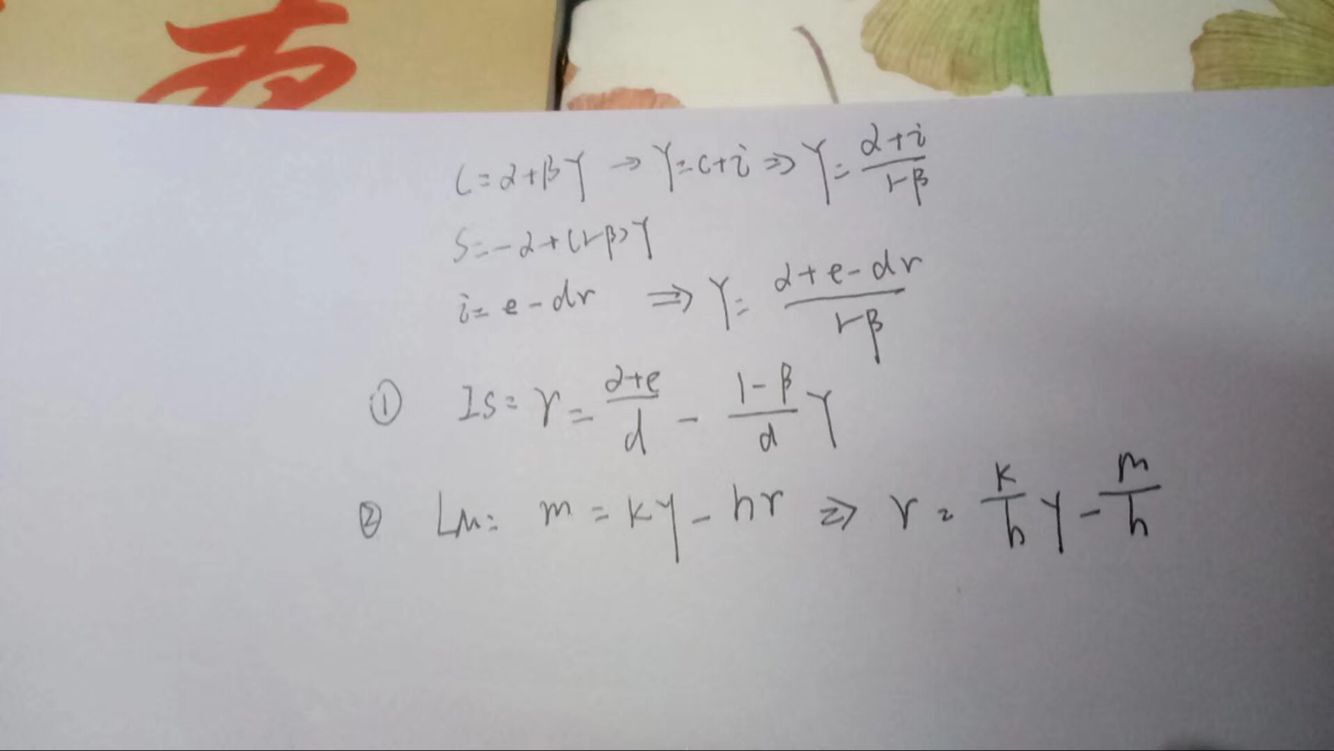 C = α + βY → Y = C + i ⇒ Y = (α + i)/(1-β)
S = -α + (1-β)Y
i = e - dr ⇒ Y = (α + e - dr)/(1-β)
① IS: r = (α + e)/d - (1-β)/d Y
② LM: m = ky - hr ⇒ r = k/h Y - m/h